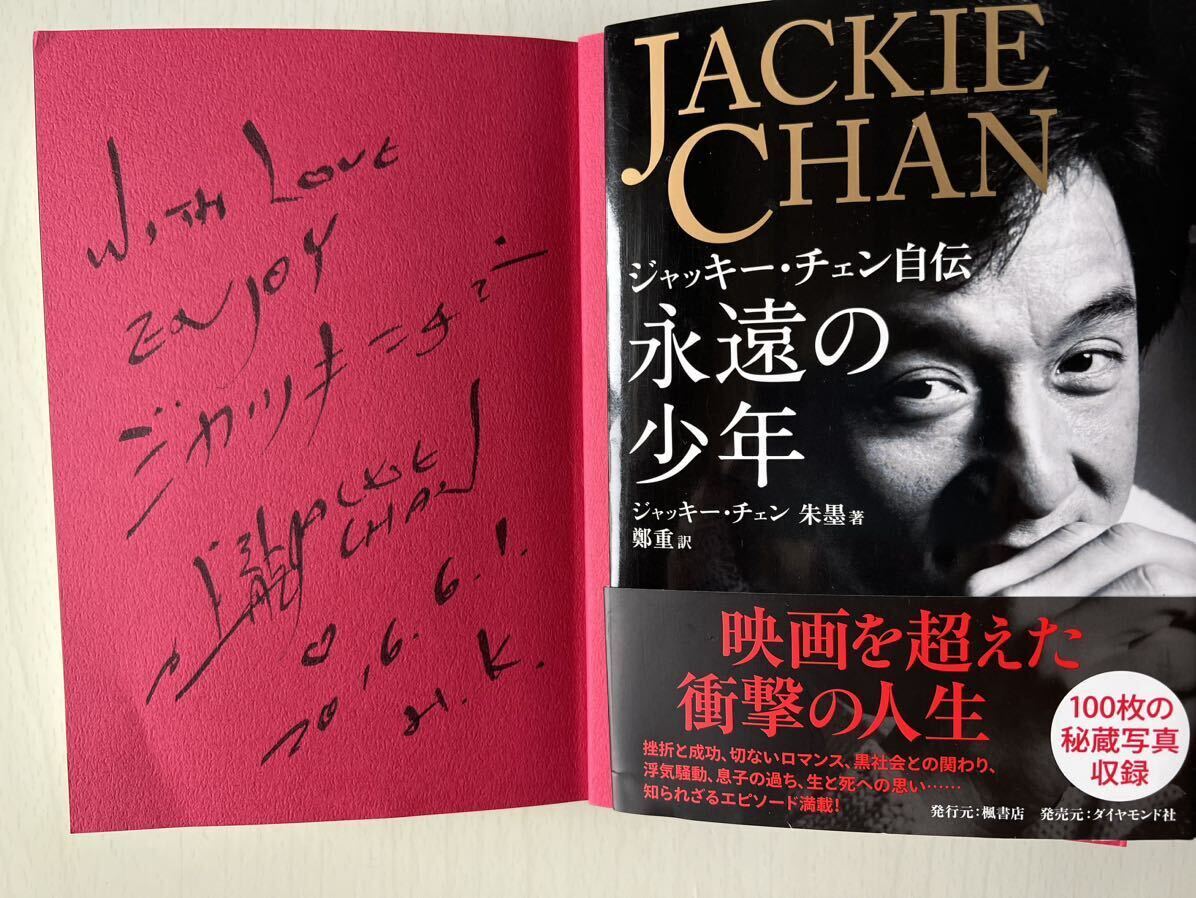 WITH LOVE
ENJOY
ジャッキーチェン
龍 JACKIE
CHAN
2016.6.1.
H.K.
JACKIE
CHAN
ジャッキー・チェン自伝
永遠の
少年
ジャッキー・チェン 朱墨 著
鄭重 訳
映画を超えた
衝撃の人生
挫折と成功、切ないロマンス、黒社会との関わり、
浮気騒動、息子の過ち、生と死への思い……
知られざるエピソード満載!
100枚の
秘蔵写真
収録
発行元:楓書店 発売元:ダイヤモンド社